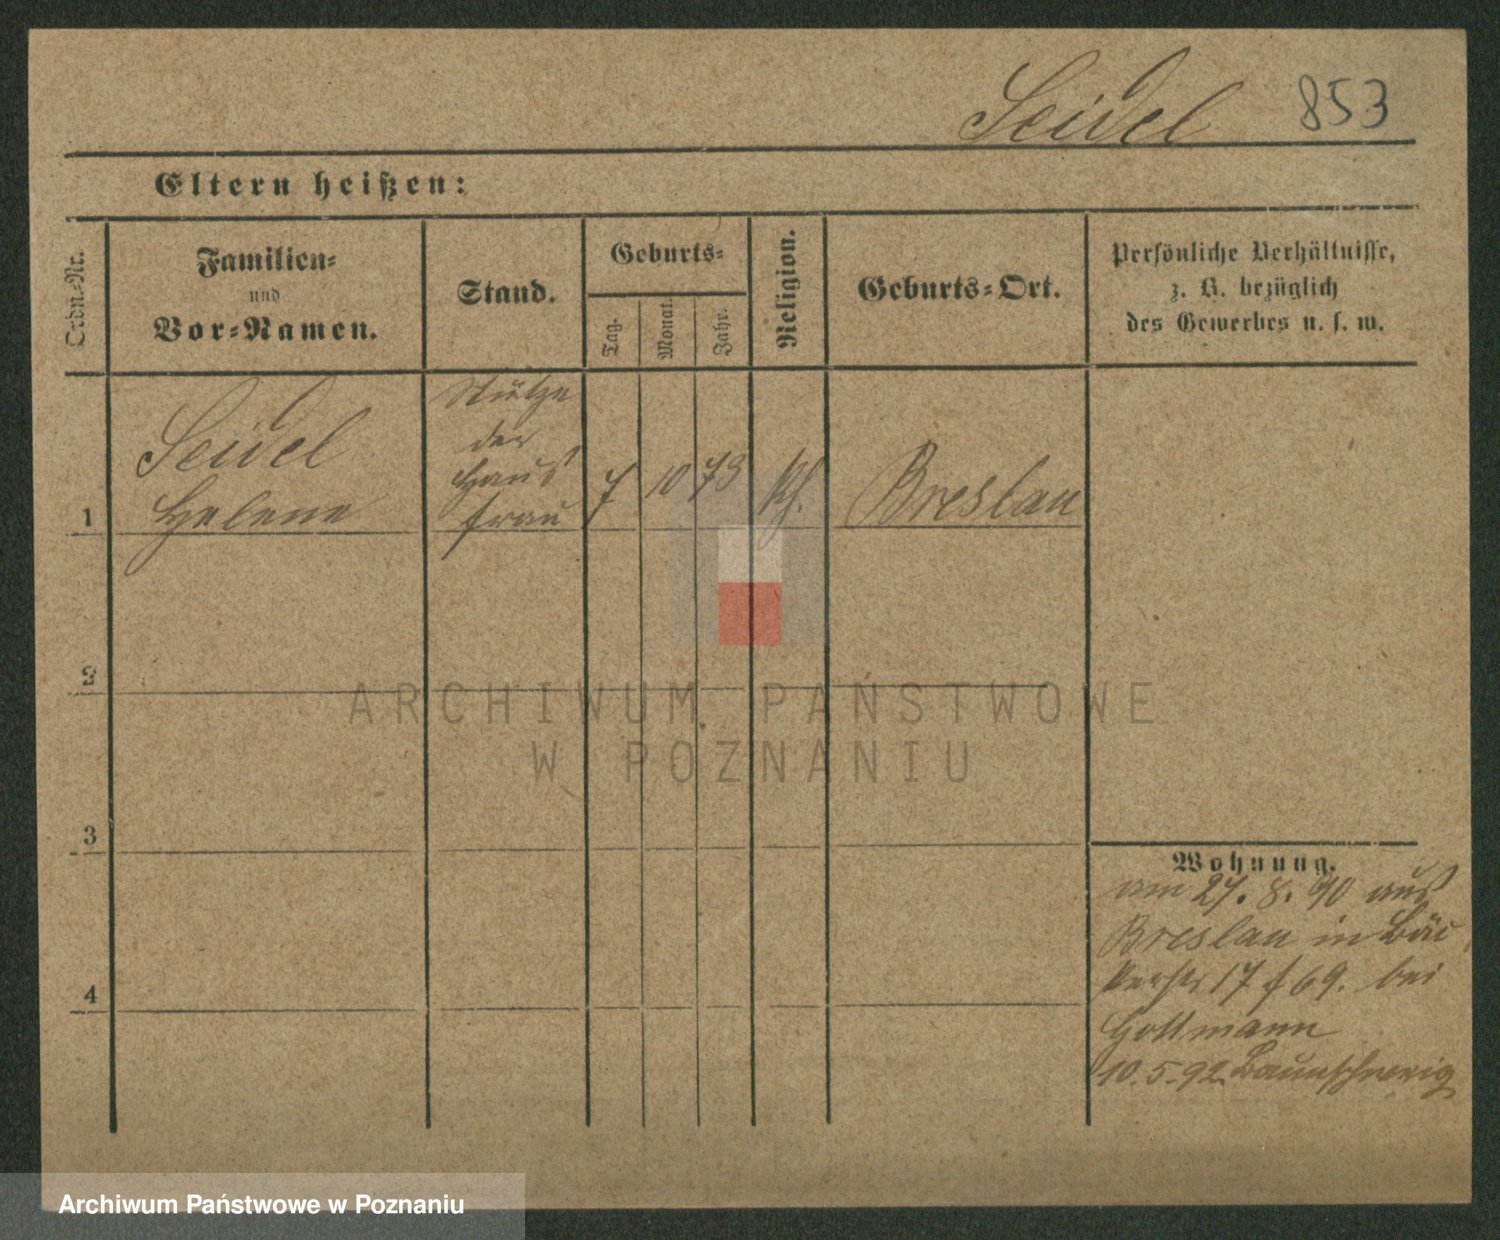 Seidel 853
Eltern heißen:
Ordn.-Nr.
Familien-
und
Vor-Namen.
Stand.
Geburts-
Tag.
Monat.
Jahr.
Religion.
Geburts-Ort.
Persönliche Verhältnisse,
z. B. bezüglich
des Gewerbes u. s. w.
1
Seidel
Helene
Stütze
der
Haus
frau
7
10
73
Breslau
2
3
4
Wohnung.
am 27. 8. 90 aus
Breslau in Bäc
kerstr 17 f 69. bei
Gottmann
10.5.92.
ARCHIWUM PAŃSTWOWE
W POZNANIU
Archiwum Państwowe w Poznaniu